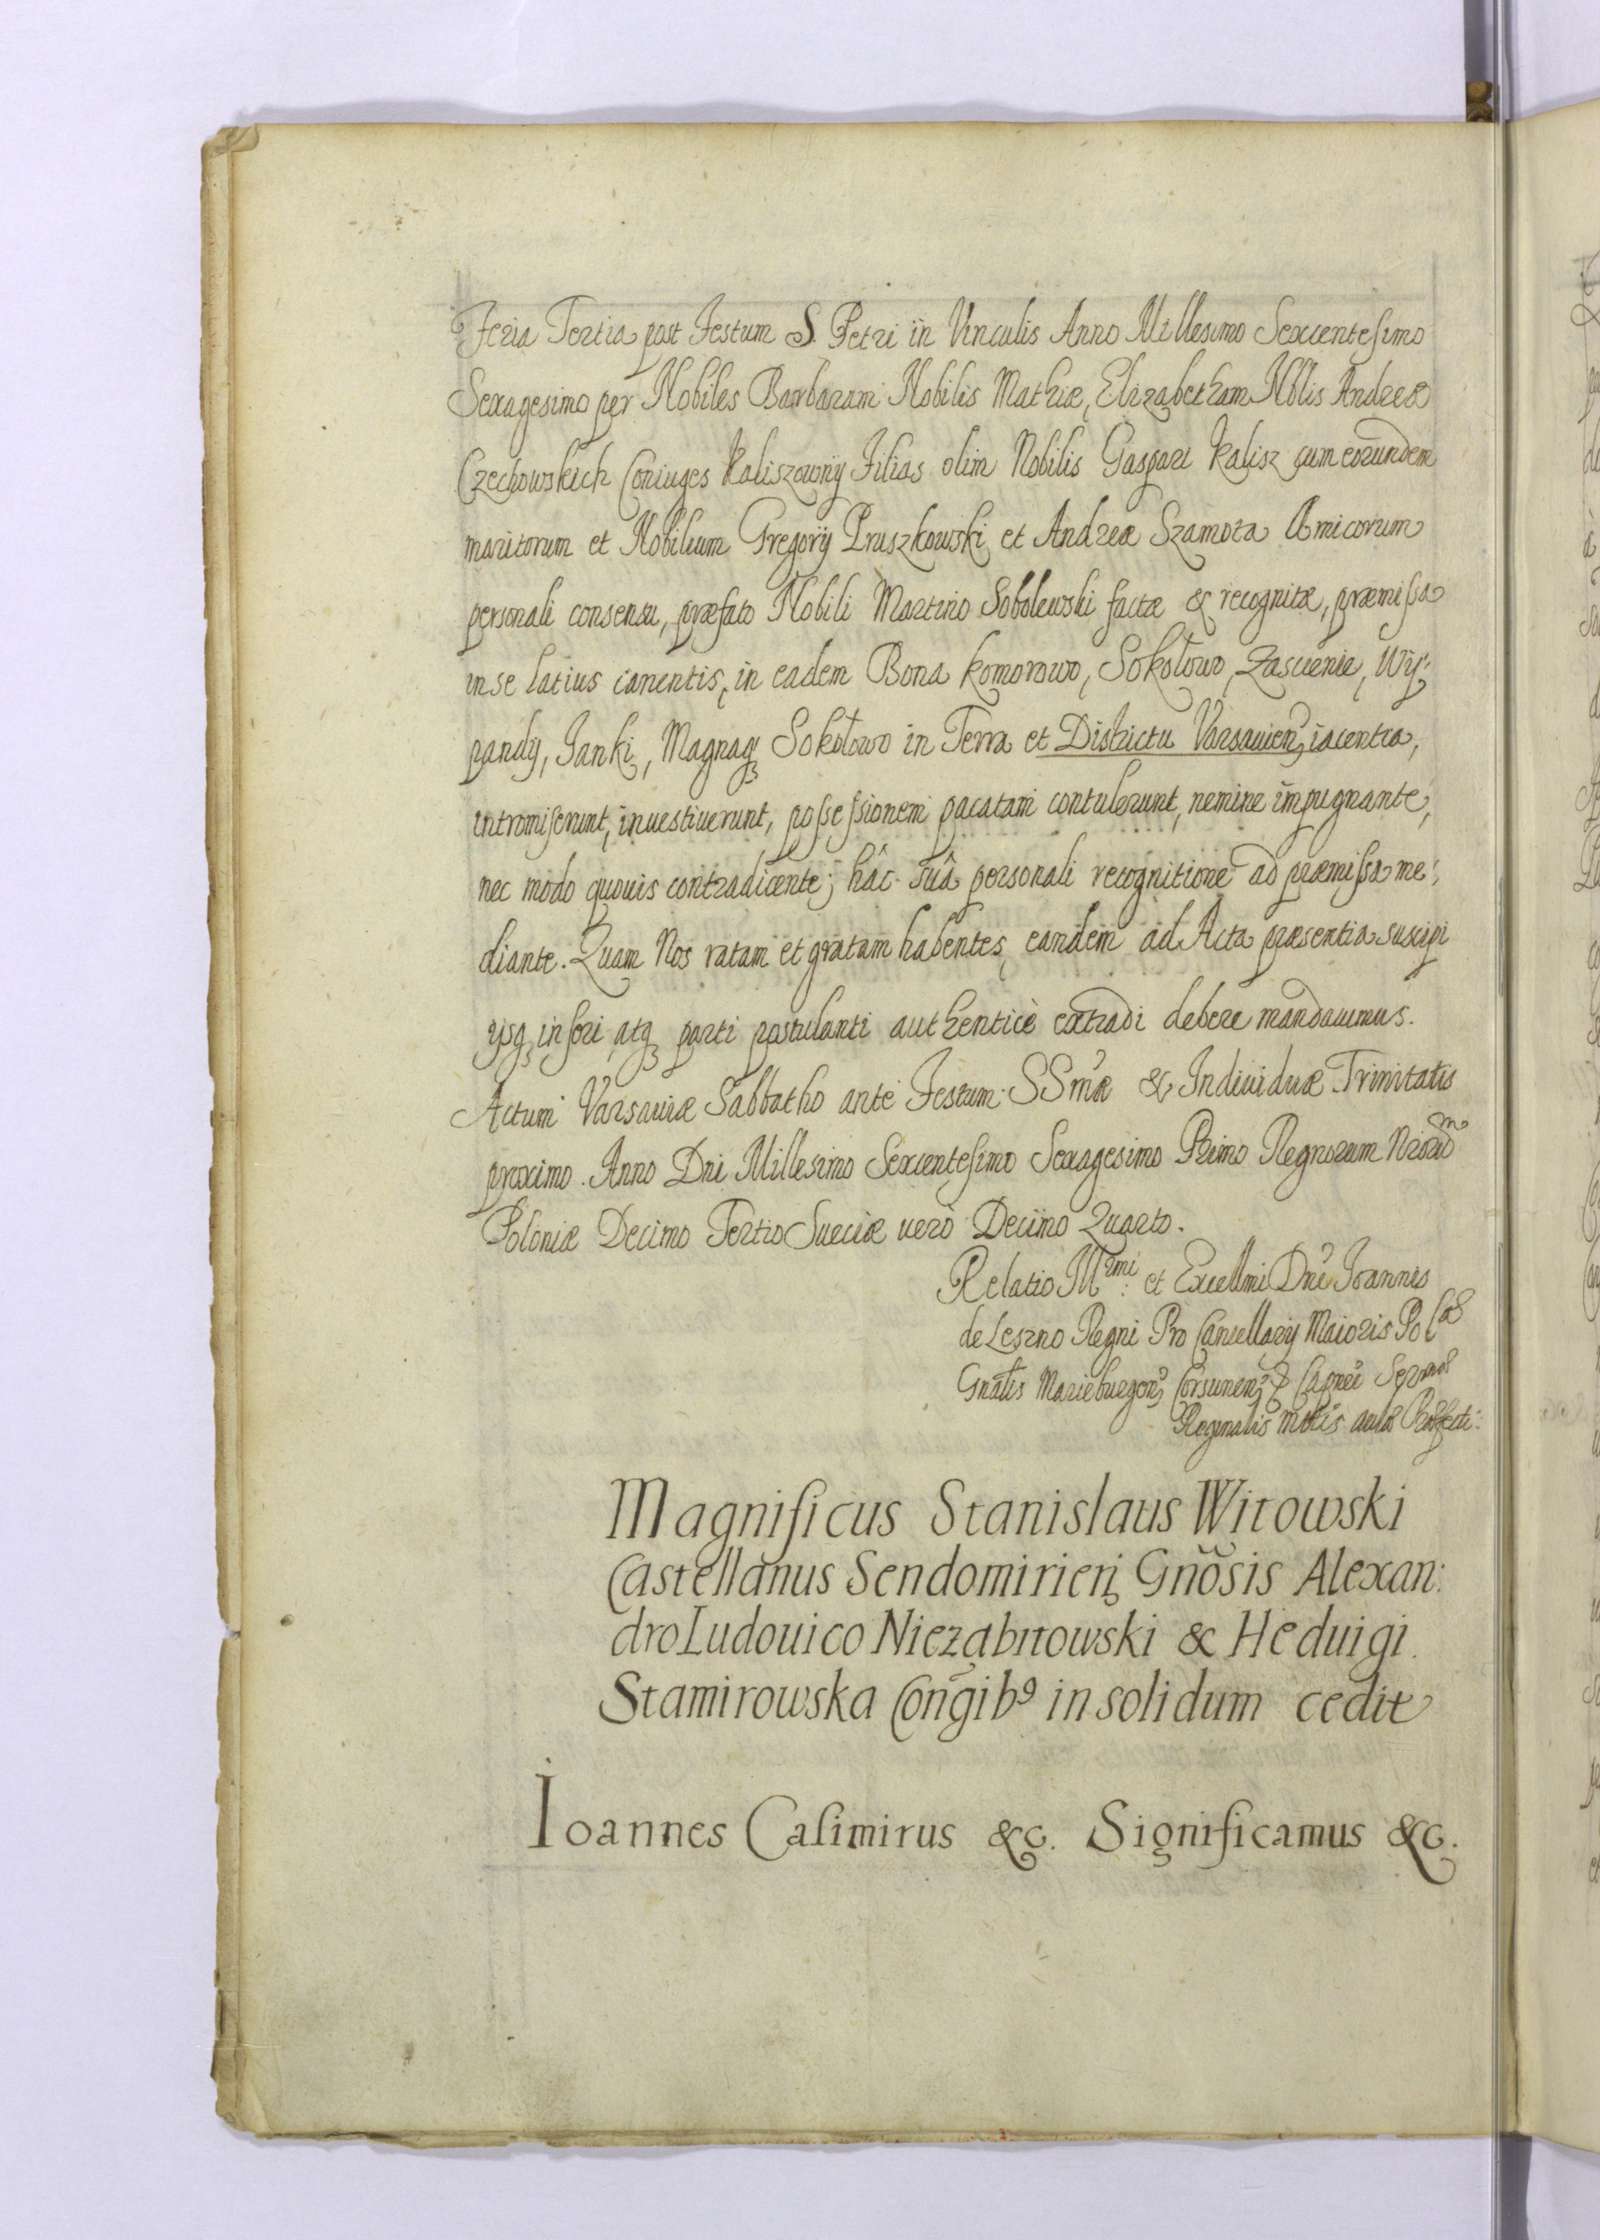 Feria Tertia post Festum S. Petri in Vinculis Anno Millesimo Sexcentesimo
Sexagesimo per Nobiles Barbaram Nobilis Mathiæ, Elizabetham Nblis Andreæ
Czechowskich Coniuges Kaliszowny Filias olim Nobilis Gaspari Kalisz cum eorundem
maritorum et Nobilium Gregorij Pruszkowski et Andreæ Szamota Amicorum
personali consensu, præfato Nobili Martino Sobolewski factæ & recognitæ, præmissa
in se latius canentis, in eadem Bona Komorowo, Sokołowo, Zascienie, Wy:
pandy, Janki, Magnaq Sokołowo in Terra et Districtu Varsauien, iacentia,
intromiserunt, inuestiuerunt, possessionem pacatam contulerunt, nemine impugnante,
nec modo quouis contradicente; hâc suâ personali recognitione ad præmissa me:
diante. Quam Nos ratam et gratam habentes, eandem ad Acta præsentia suscipi
ijsq, inseri atq, parti postulanti authenticè extradi debere mandauimus.
Actum Varsauiæ Sabbatho ante Festum SSmæ & Indiuiduæ Trinitatis
proximo. Anno Dni Millesimo Sexcentesimo Sexagesimo Primo Regnorum Nrorum
Poloniæ Decimo Tertio Sueciæ uerò Decimo Quarto.
Relatio Illmi et Excellmi Dni Joannis
de Leszno Regni Pro Cancellarij Maioris Pol
Gnalis Marieburgen, Corsunen, &
Reginalis Mttis aulæ Præfecti.
Magnificus Stanislaus Witowski
Castellanus Sendomirien, Gnosis Alexan:
dro Ludouico Niezabitowski & Heduigi
Stamirowska Congib9 in solidum cedit
Ioannes Casimirus &c. Significamus &c.